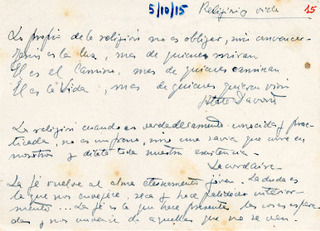 5/10/15 Religión vida 15
Lo propio de la religión no es obligar, sino convencer.
Jesús es la luz, mas de quienes miran
El es el Camino, mas de quienes caminan
El es la Vida, mas de quienes quieren vivir
La religión cuando es verdaderamente conocida y prac-
ticada, no es un freno, sino una savia que vive en
nosotros y dicta toda nuestra existencia.
Lacordaire.
La fé vuelve al alma eternamente jóven. La duda es
la que nos envejece, seca y hace palidecer interior-
mente... La fé es la que hace presente las cosas espera-
das y nos convence de aquellas que no se ven.